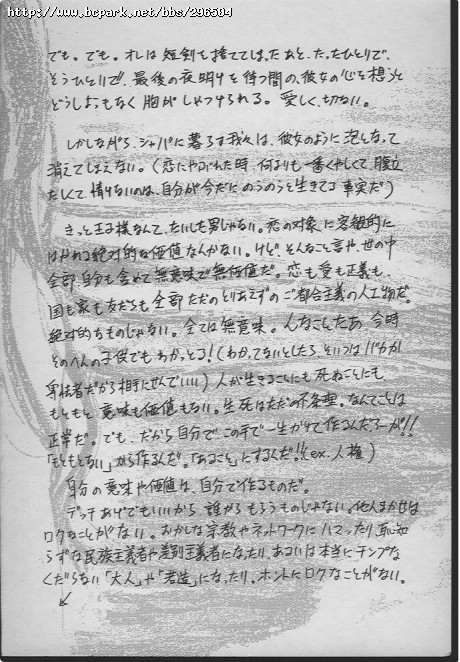 http://www.bcpark.net/bbs/296504
でも。でも。オレは短剣を捨ててしまったあと、たったひとりで、
そうひとりで、最後の夜明けを待つ間の、彼女の心を想うと
どうしようもなく胸がしめつけられる。愛しく、切ない。
しかしながら、シャバに暮らす我々は、彼女のように泡となって
消えてしまえない。(恋にやぶれた時、何よりも一番くやしくて、腹立
たしくて、情けないのは、自分が今だにのうのうと生きてる事実だ)
きっと王子様なんて、たいした男じゃない。恋の対象に客観的に
はかれる絶対的な価値なんかない。けど、そんなこと言や、世の中
全部、自分も含めて無意味で無価値だ。恋も愛も正義も、
国も家も友だちも全部ただのとりあえずのご都合主義の人工物だ。
絶対的なものじゃない。全ては無意味。んなこたあ、今時
そのへんの子供でもわかっとる!(わかってないとしたら、そいつはバカか
卑怯者だから相手にせんでいい)人が生きることにも死ぬことにも、
もともと意味も価値もない。生死はただの不条理。なんてことは
正常だ。でも、だから自分でこの手で一生かけて作るんだろーが!!
「もともとない」から作るんだ。「あること」にするんだ!!(ex.人権)
自分の意味や価値は、自分で作るものだ。
デッチあげでもいいから、誰からもらうものじゃない。他人まかせは
ロクなことがない。おかしな宗教やネットワークにハマったり、恥知
らずな民族主義者や差別主義者になったり、あるいは本当にチンプな
くだらない「大人」や「若造」になったり。ホントにロクなことがない。